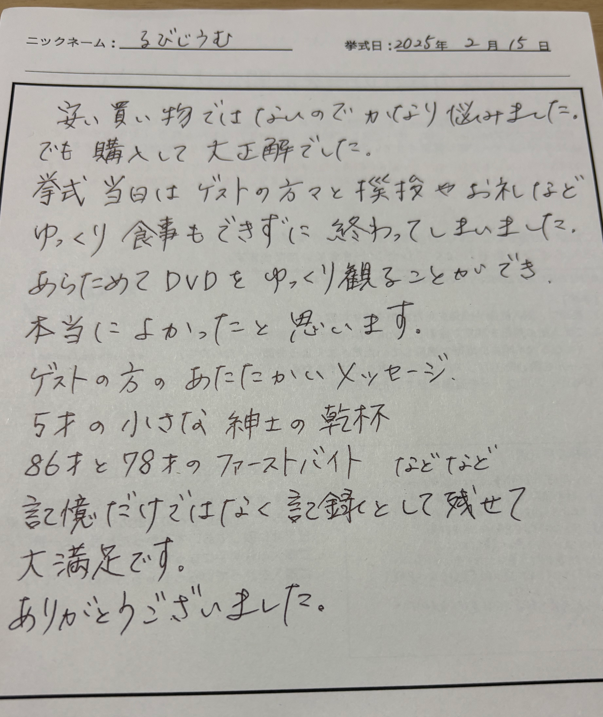 ニックネーム：るびじうむ 挙式日：2025年 2月 15日
安い買い物ではないのでかなり悩みました。
でも購入して大正解でした。
挙式当日はゲストの方々と挨拶やお礼など
ゆっくり食事もできずに終わってしまいました。
あらためてDVDをゆっくり観ることができ、
本当によかったと思います。
ゲストの方のあたたかいメッセージ、
5才の小さな紳士の乾杯
86才と78才のファーストバイト などなど
記憶だけではなく記録として残せて
大満足です。
ありがとうございました。